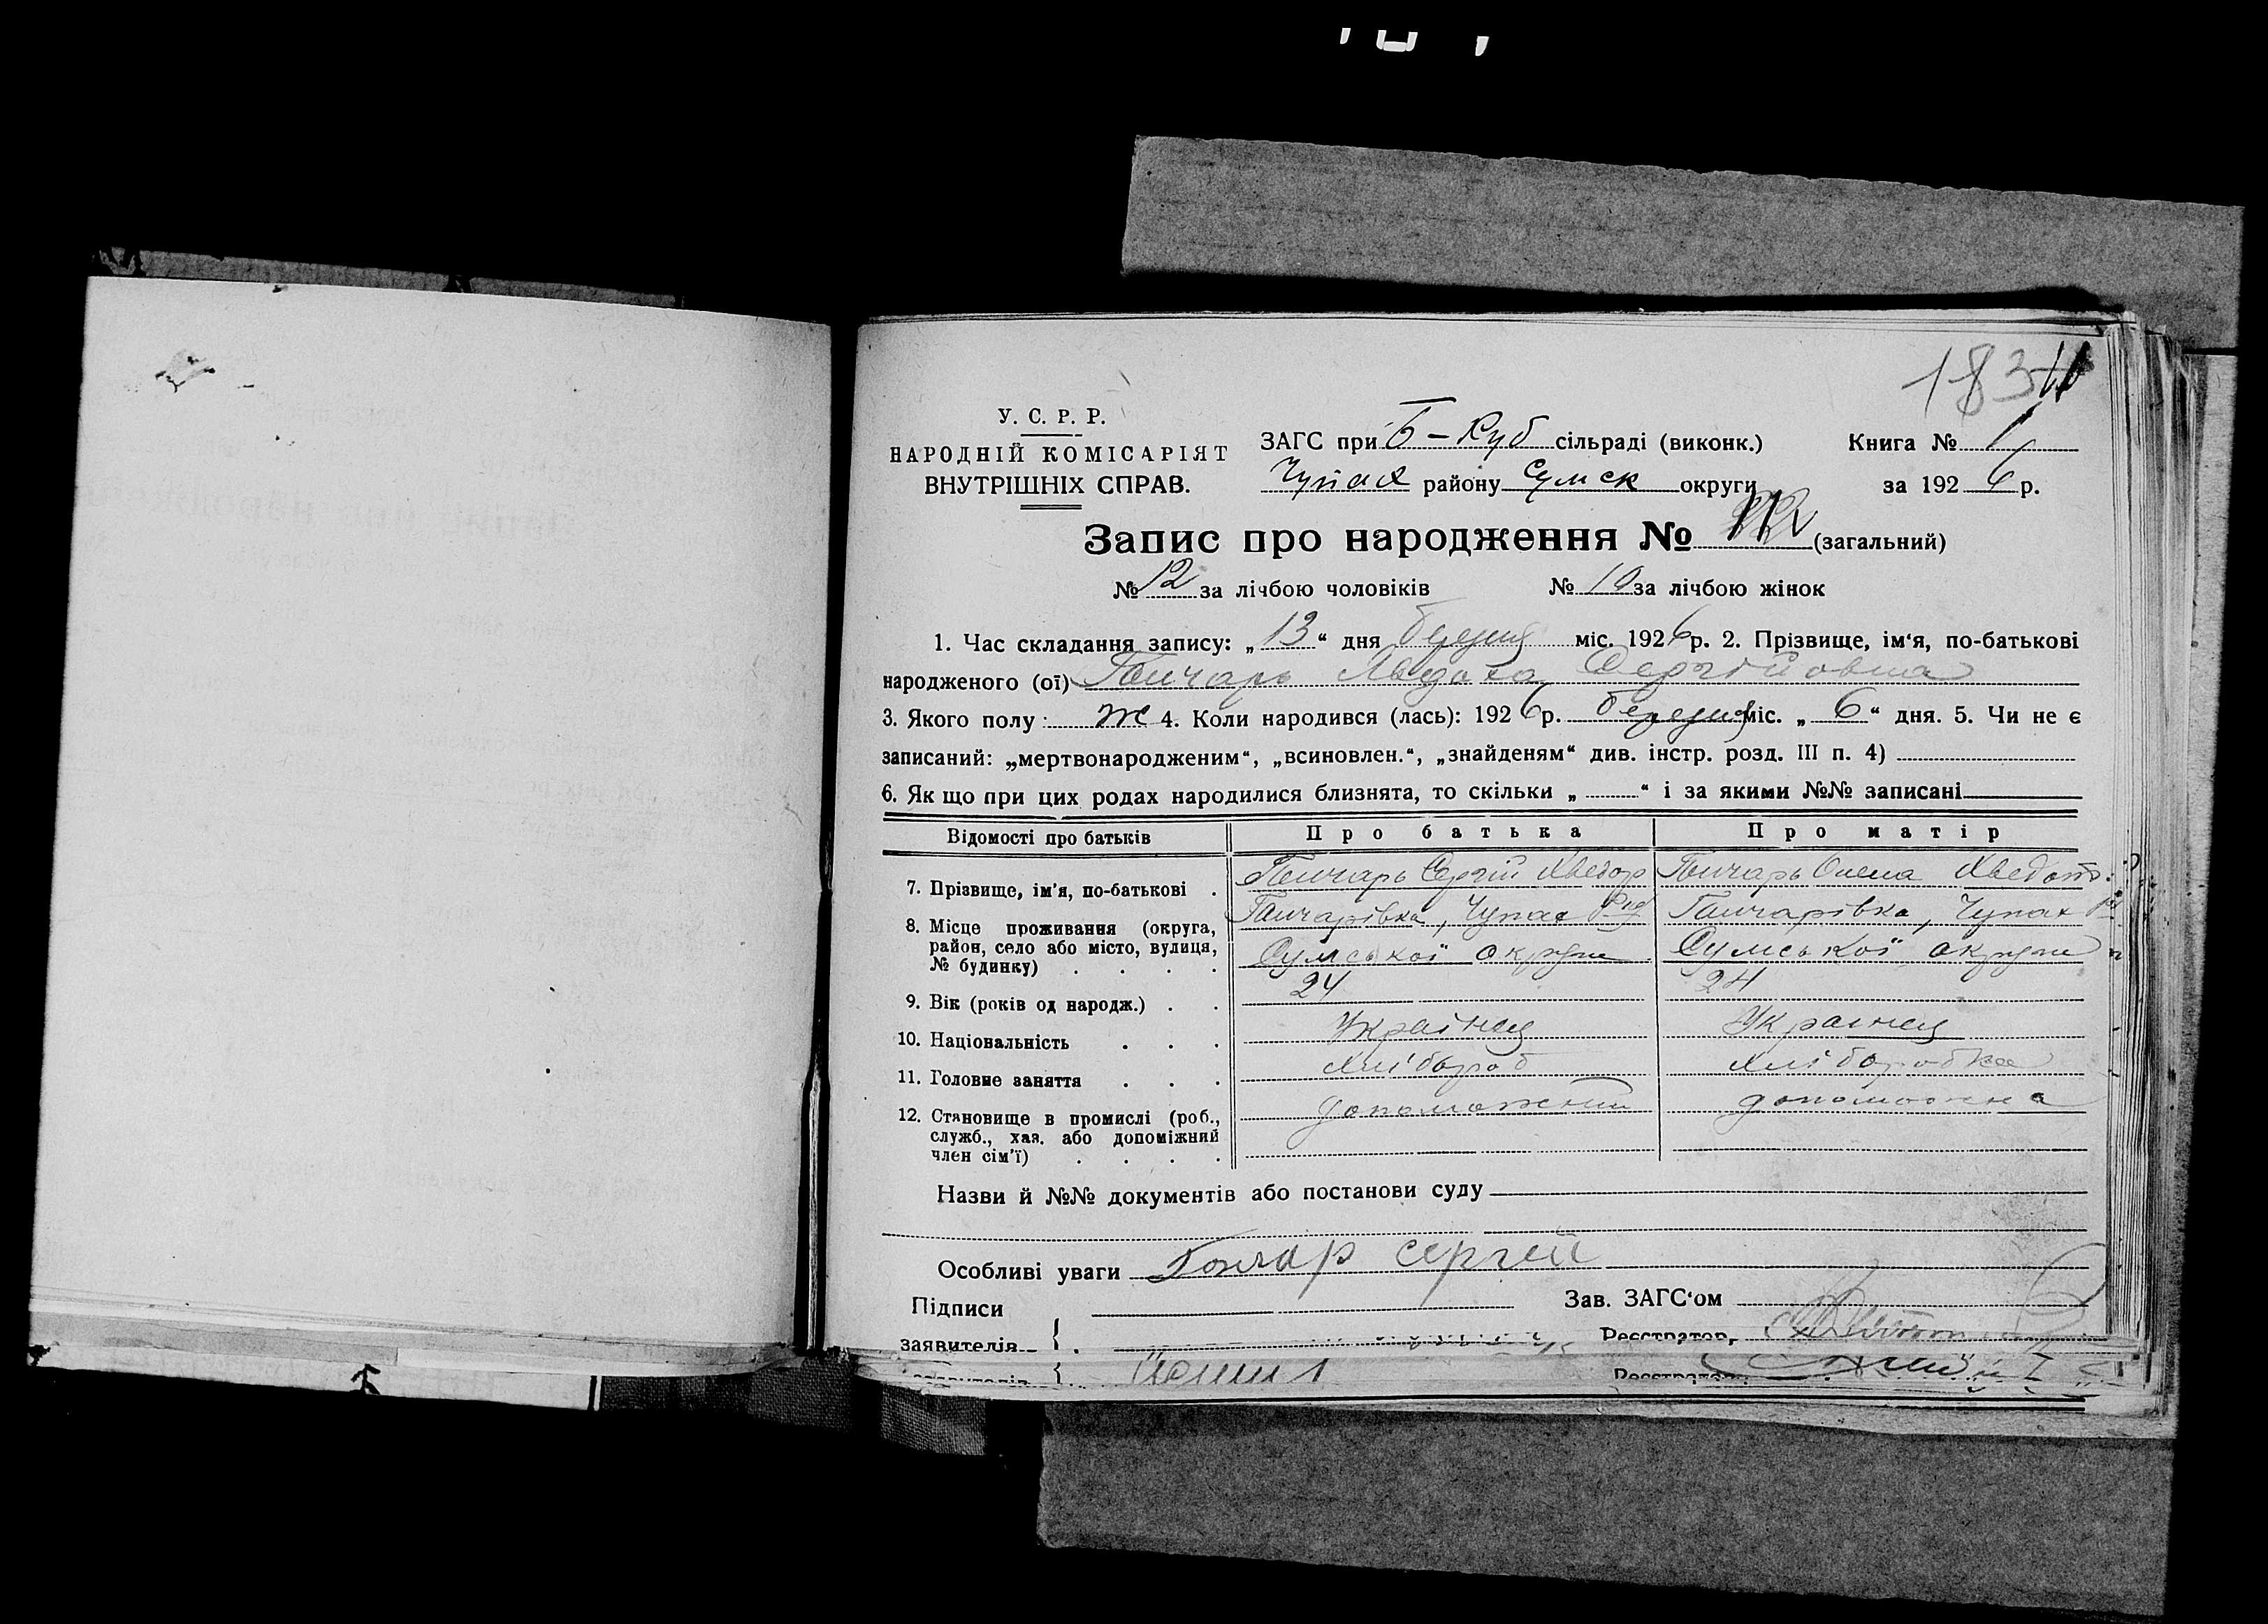 183
У. С. Р. Р.
НАРОДНІЙ КОМІСАРІЯТ
ВНУТРІШНІХ СПРАВ.
ЗАГС при Б-Куб сільраді (виконк.) Книга № 1
Чупах району Сумск округи за 1926 р.
Запис про народження № (загальний)
№ 12 за лічбою чоловіків № 10 за лічбою жінок
1. Час складання запису: „ 13 “ дня березня міс. 1926 р. 2. Прізвище, ім‘я, по-батькові
народженого (ої) Гончарь Явдоха Сергійовна
3. Якого полу: ж 4. Коли народився (лась): 1926 р. березня міс. „ 6 “ дня. 5. Чи не є
записаний: „мертвонародженим“, „всиновлен.“, „знайденям“ див. інстр. розд. III п. 4)
6. Як що при цих родах народилися близнята, то скільки „ “ і за якими №№ записані
Відомості про батьків Про батька Про матір
7. Прізвище, ім'я, по-батькові . Гончарь Сергій Хведор Гончарь Олена Хведот.
8. Місце проживання (округа, район, село або місто, вулиця, № будинку) . . . . Гончарівка, Чупах Рад Гончарівка, Чупах
Сумської округи Сумської округи
9. Вік (років од народж.) . . 24 24
10. Національність . . . Українец Украінец
11. Головне заняття . . . Хлібороб Хліборобка
12. Становище в промислі (роб., служб., хаз. або допоміжний член сім'ї) . . . . допоможний допоможна
Назви й №№ документів або постанови суду
Особливі уваги Гончар Сергей
Підписи Зав. ЗАГС‘ом
заявителів { Реєстратор
заявителів { Реєстратор